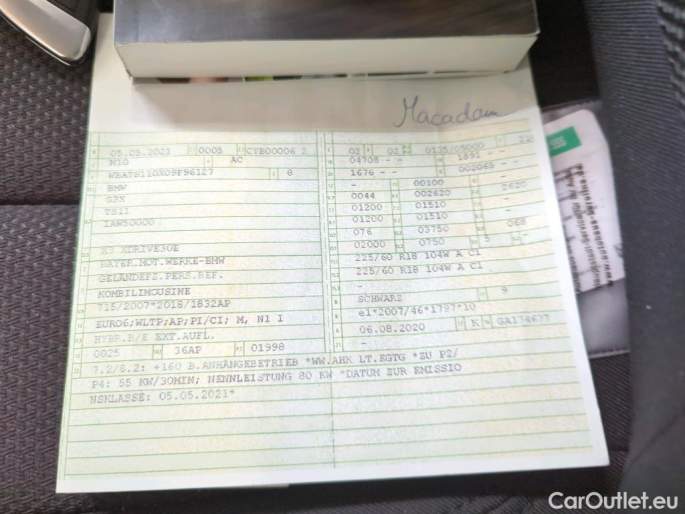 Macadam
05.05.2021 0005 CYB00006 2
M1G AC
8
BMW
G3X
TS11
X3 XDRIVE30E
BAYER.MOT.WERKE-BMW
GELÄNDEFZ.PERS.BEF.
KOMBILIMOUSINE
715/2007*2018/1832AP
EURO6;WLTP;AP;PI/CI; M, N1 I
HYBR.B/E EXT.AUFL.
0025 36AP 01998
02 02 0135/05000 22
04708 - - 1891 -
1676 - -
- 00100 -
0044 002620 2620
01200 01510 -
01200 01510 -
076 03750 068
02000 0750 5 -
225/60 R18 104W A C1
225/60 R18 104W A C1
-
SCHWARZ 9
e1*2007/46*1797*10
06.08.2020 K
7.2/8.2: +160 B.ANHÄNGEBETRIEB *WW.AHK LT.EGTG *ZU P2/
P4: 55 KW/30MIN; NENNLEISTUNG 80 KW *DATUM ZUR EMISSIO
NSKLASSE: 05.05.2021*
CarOutlet.eu